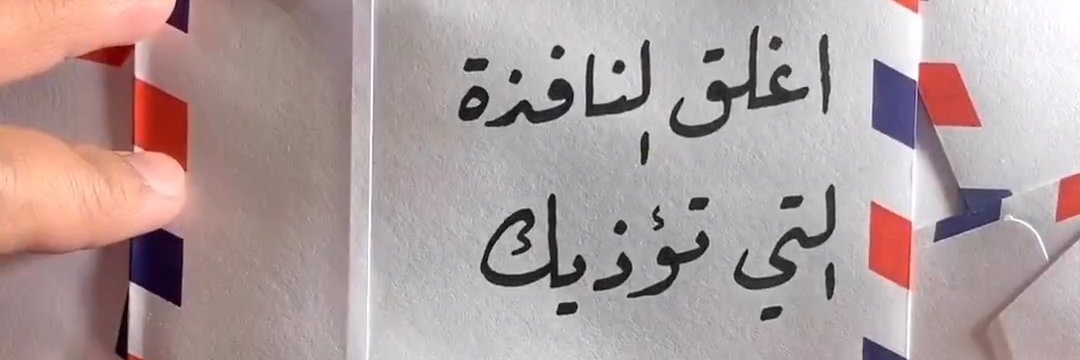 اغلق النافذة
التي تؤذيك